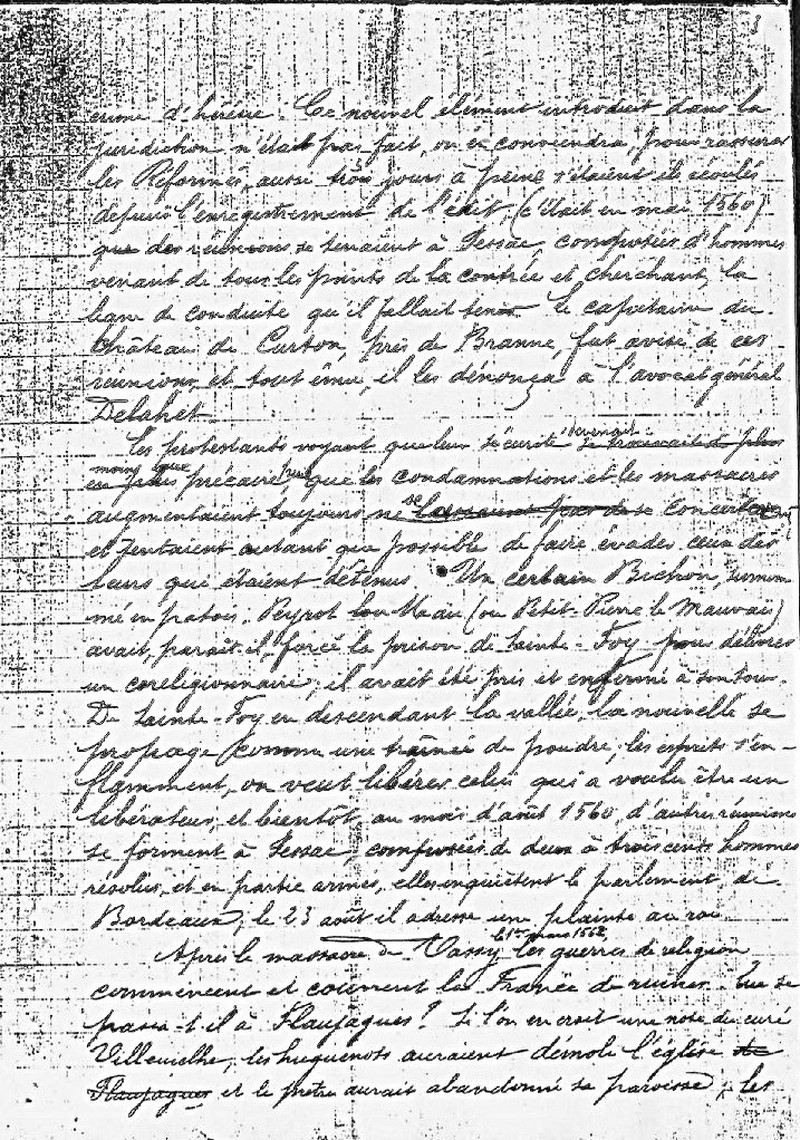 3
crime d'hérésie. Ce nouvel élément introduit dans la
juridiction n'était pas fait, on en conviendra, pour rassurer
les Réformés, aussi trois jours à peine s'étaient ils écoulés
depuis l'enregistrement de l'édit, (c'était en mai 1560)
que des réunions se tenaient à Pessac, composées d'hommes
venant de tous les points de la contrée et cherchant la
ligne de conduite qu'il fallait tenir. Le capitaine du
château de Curton, près de Branne, fut avisé de ces
réunions, et tout ému, il les dénonça à l'avocat général
Delahet
Les protestants voyant que leur sécurité devenait
moins que précaire, que les condamnations et les massacres
augmentaient toujours ne se concerter
et tentaient autant que possible de faire évader ceux des
leurs qui étaient détenus. Un certain Bichon, surnom
mé en patois, Peyrot lou Maou (ou Petit-Pierre le Mauvais)
avait, paraît-il, forcé la prison de Sainte-Foy pour délivrer
un coreligionnaire; il avait été pris et enfermé à son tour.
De Sainte-Foy en descendant la vallée, la nouvelle se
propage comme une traînée de poudre, les esprits s'en-
flamment, on veut libérer celui qui a voulu être un
libérateur, et bientôt, au mois d'août 1560, d'autres réunions
se forment à Pessac, composées de deux à trois cents hommes
résolus, et en partie armés, elles inquiètent le parlement de
Bordeaux, le 23 août il adresse une plainte au roi.
le 1er mars 1562
Après le massacre de Vassy, les guerres de religion
commencent et couvrent la France de ruines. Que se
passa-t-il à Flaujagues? Si l'on en croit une note du curé
Villemelhe, les huguenots auraient démoli l'église de
Flaujagues et le prêtre aurait abandonné sa paroisse; les